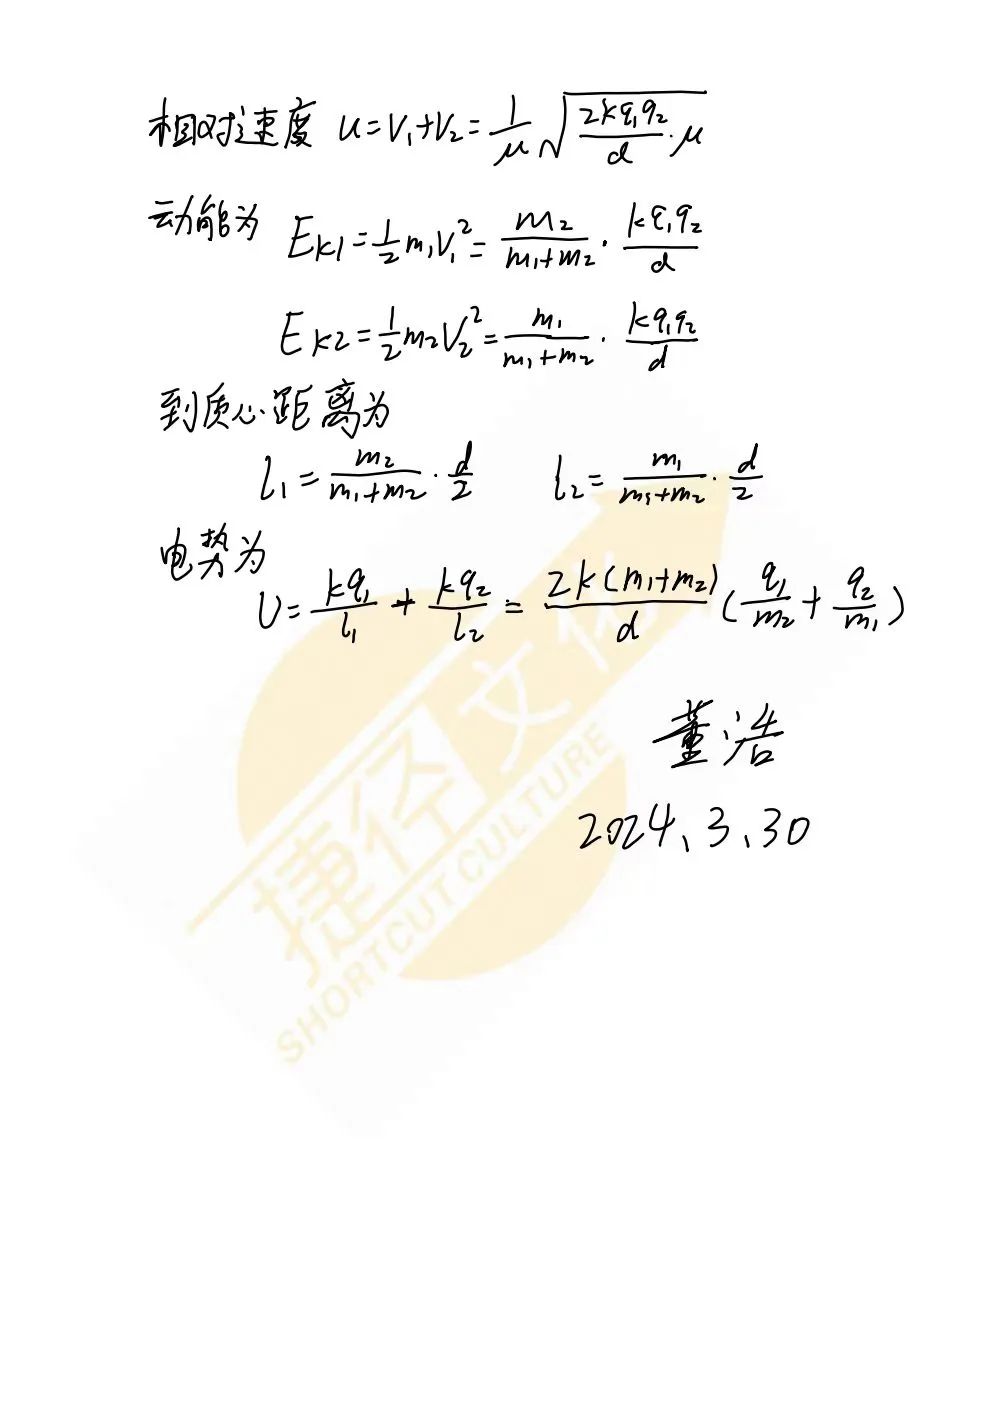 相对速度 u=v₁+v₂=\frac{1}{μ}\sqrt{\frac{2kq₁q₂}{d}·μ}
动能为 E_{k1}=\frac{1}{2}m₁v₁²=\frac{m₂}{m₁+m₂}·\frac{kq₁q₂}{d}
E_{k2}=\frac{1}{2}m₂v₂²=\frac{m₁}{m₁+m₂}·\frac{kq₁q₂}{d}
到质心距离为
l₁=\frac{m₂}{m₁+m₂}·\frac{d}{2} l₂=\frac{m₁}{m₁+m₂}·\frac{d}{2}
电势为
U=\frac{kq₁}{l₁}+\frac{kq₂}{l₂}=\frac{2k(m₁+m₂)}{d}(\frac{q₁}{m₂}+\frac{q₂}{m₁})
董浩
2024.3.30
捷径文化
SHORTCUT CULTURE